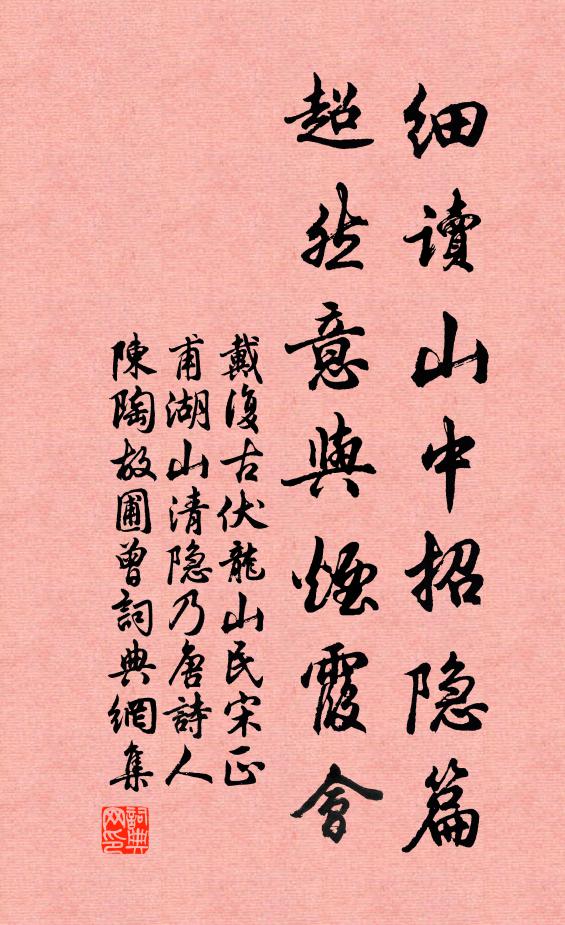 細讀山中招隐篇
超然意與煙霞會
戴復古伏龍山民宋正
甫湖山清隐乃唐詩人
陳陶故圃曾詞典網集
詞典
网印